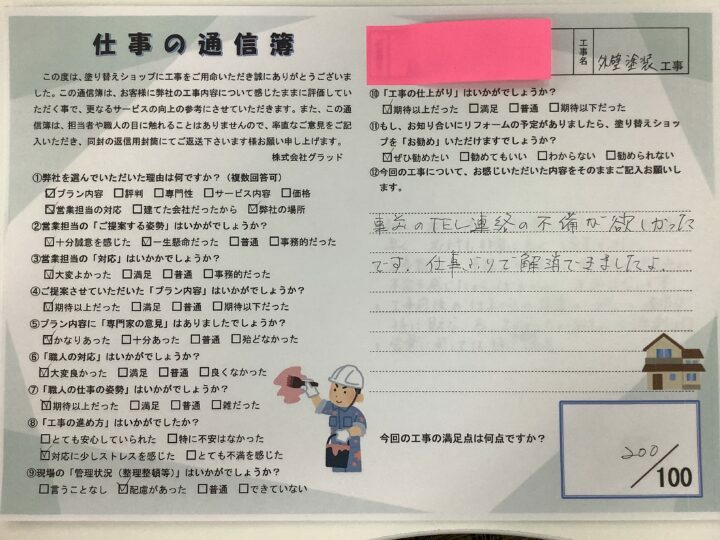 仕事の通信簿
この度は、塗り替えショップに工事をご用命いただき誠にありがとうございま
した。この通信簿は、お客様に弊社の工事内容について感じたままに評価してい
ただく事で、更なるサービスの向上の参考にさせていただきます。また、この通
信簿は、担当者や職人の目に触れることはありませんので、率直なご意見をご記
入いただき、同封の返信用封筒にてご返送下さいます様お願い申し上げます。
株式会社グラッド
①弊社を選んでいただいた理由は何ですか?(複数回答可)
☑プラン内容 □評判 □専門性 □サービス内容 □価格
☑営業担当の対応 □建てた会社だったから ☑弊社の場所
②営業担当の「ご提案する姿勢」はいかがでしょうか?
☑十分誠意を感じた ☑一生懸命だった □普通 □事務的だった
③営業担当の「対応」はいかかでしょうか?
☑大変よかった □満足 □普通 □事務的だった
④ご提案させていただいた「プラン内容」はいかがでしょうか?
☑期待以上だった □満足 □普通 □期待以下だった
⑤プラン内容に「専門家の意見」はありましたでしょうか?
☑かなりあった □十分あった □普通 □殆どなかった
⑥「職人の対応」はいかがでしょうか?
☑大変良かった □満足 □普通 □良くなかった
⑦「職人の仕事の姿勢」はいかがでしょうか?
☑期待以上だった □満足 □普通 □雑だった
⑧「工事の進め方」はいかがでしたか?
□とても安心していられた □特に不安はなかった
☑対応に少しストレスを感じた □とても不満を感じた
⑨現場の「管理状況(整理整頓等)」はいかがでしょうか?
□言うことなし ☑配慮があった □普通 □できていない
工事名 外壁塗装工事
⑩「工事の仕上がり」はいかがでしょうか?
☑期待以上だった □満足 □普通 □期待以下だった
⑪もし、お知り合いにリフォームの予定がありましたら、塗り替えショッ
プを「お勧め」いただけますでしょうか?
☑ぜひ勧めたい □勧めてもいい □わからない □勧められない
⑫今回の工事について、お感じいただいた内容をそのままご記入お願いし
ます。
事前のTEL連絡の不備が欲しかった
です。仕事ぶりで解消できましたよ。
今回の工事の満足点は何点ですか?
200/100